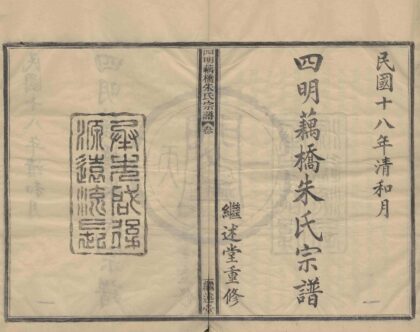 民國十八年清和月
四明藕橋朱氏宗譜
繼述堂重修
四明藕橋朱氏宗譜
卷
繼述堂
源遠流長